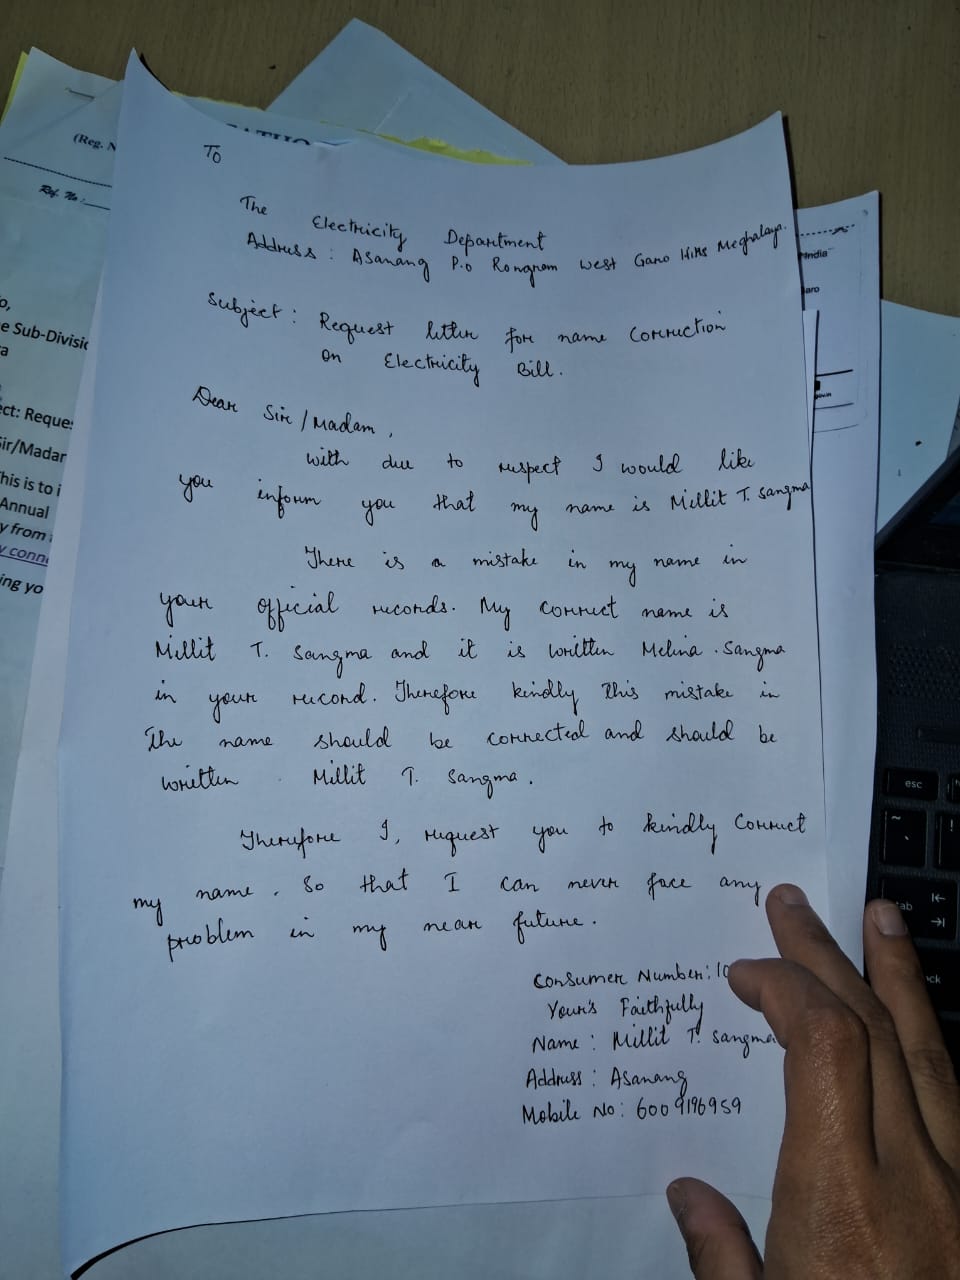 To
The Electricity Department
Address : Asanang P.o Rongram West Garo Hills Meghalaya.
Subject : Request letter for name Correction
on Electricity Bill.
Dear Sir/Madam,
with due to respect I would like
you inform you that my name is Millit T. Sangma
There is a mistake in my name in
your official records. My correct name is
Millit T. Sangma and it is written Melina. Sangma
in your record. Therefore kindly This mistake in
The name should be corrected and should be
written . Millit T. Sangma.
Therefore I, request you to kindly Correct
my name. So that I can never face any
problem in my near future.
Consumer Number: 10
Your's Faithfully
Name : Millit T. Sangma
Address : Asanang
Mobile No : 6009196959
(Reg. N
Ref. No :
o,
e Sub-Divisio
a
ect: Reques
Sir/Madar
This is to i
Annual
y from
y conne
ing yo
India
aro
gov.in
esc
tab
ck